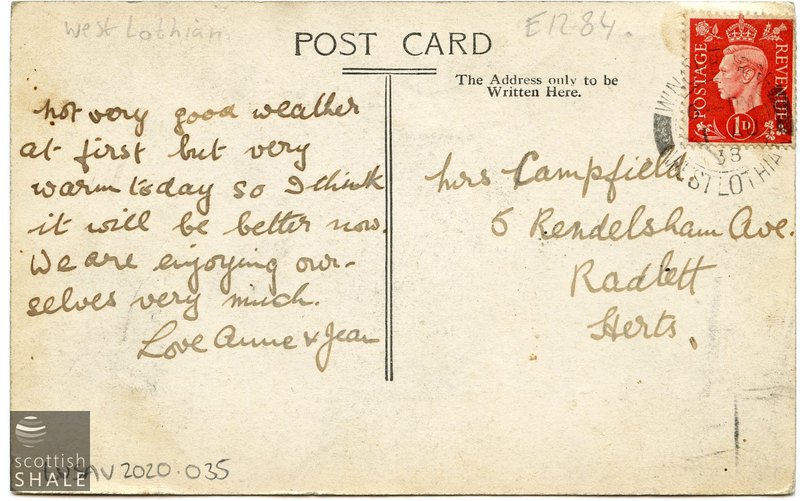 West Lothian
E1284.
POST CARD
The Address only to be
Written Here.
POSTAGE
REVENUE
1D
38
WEST LOTHIAN
not very good weather
at first but very
warm today so I think
it will be better now.
We are enjoying our-
selves very much.
Love Anne & Jean
Mrs Campfield
5 Rendelsham Ave.
Radlett
Herts.
scottish
SHALE
2020.035